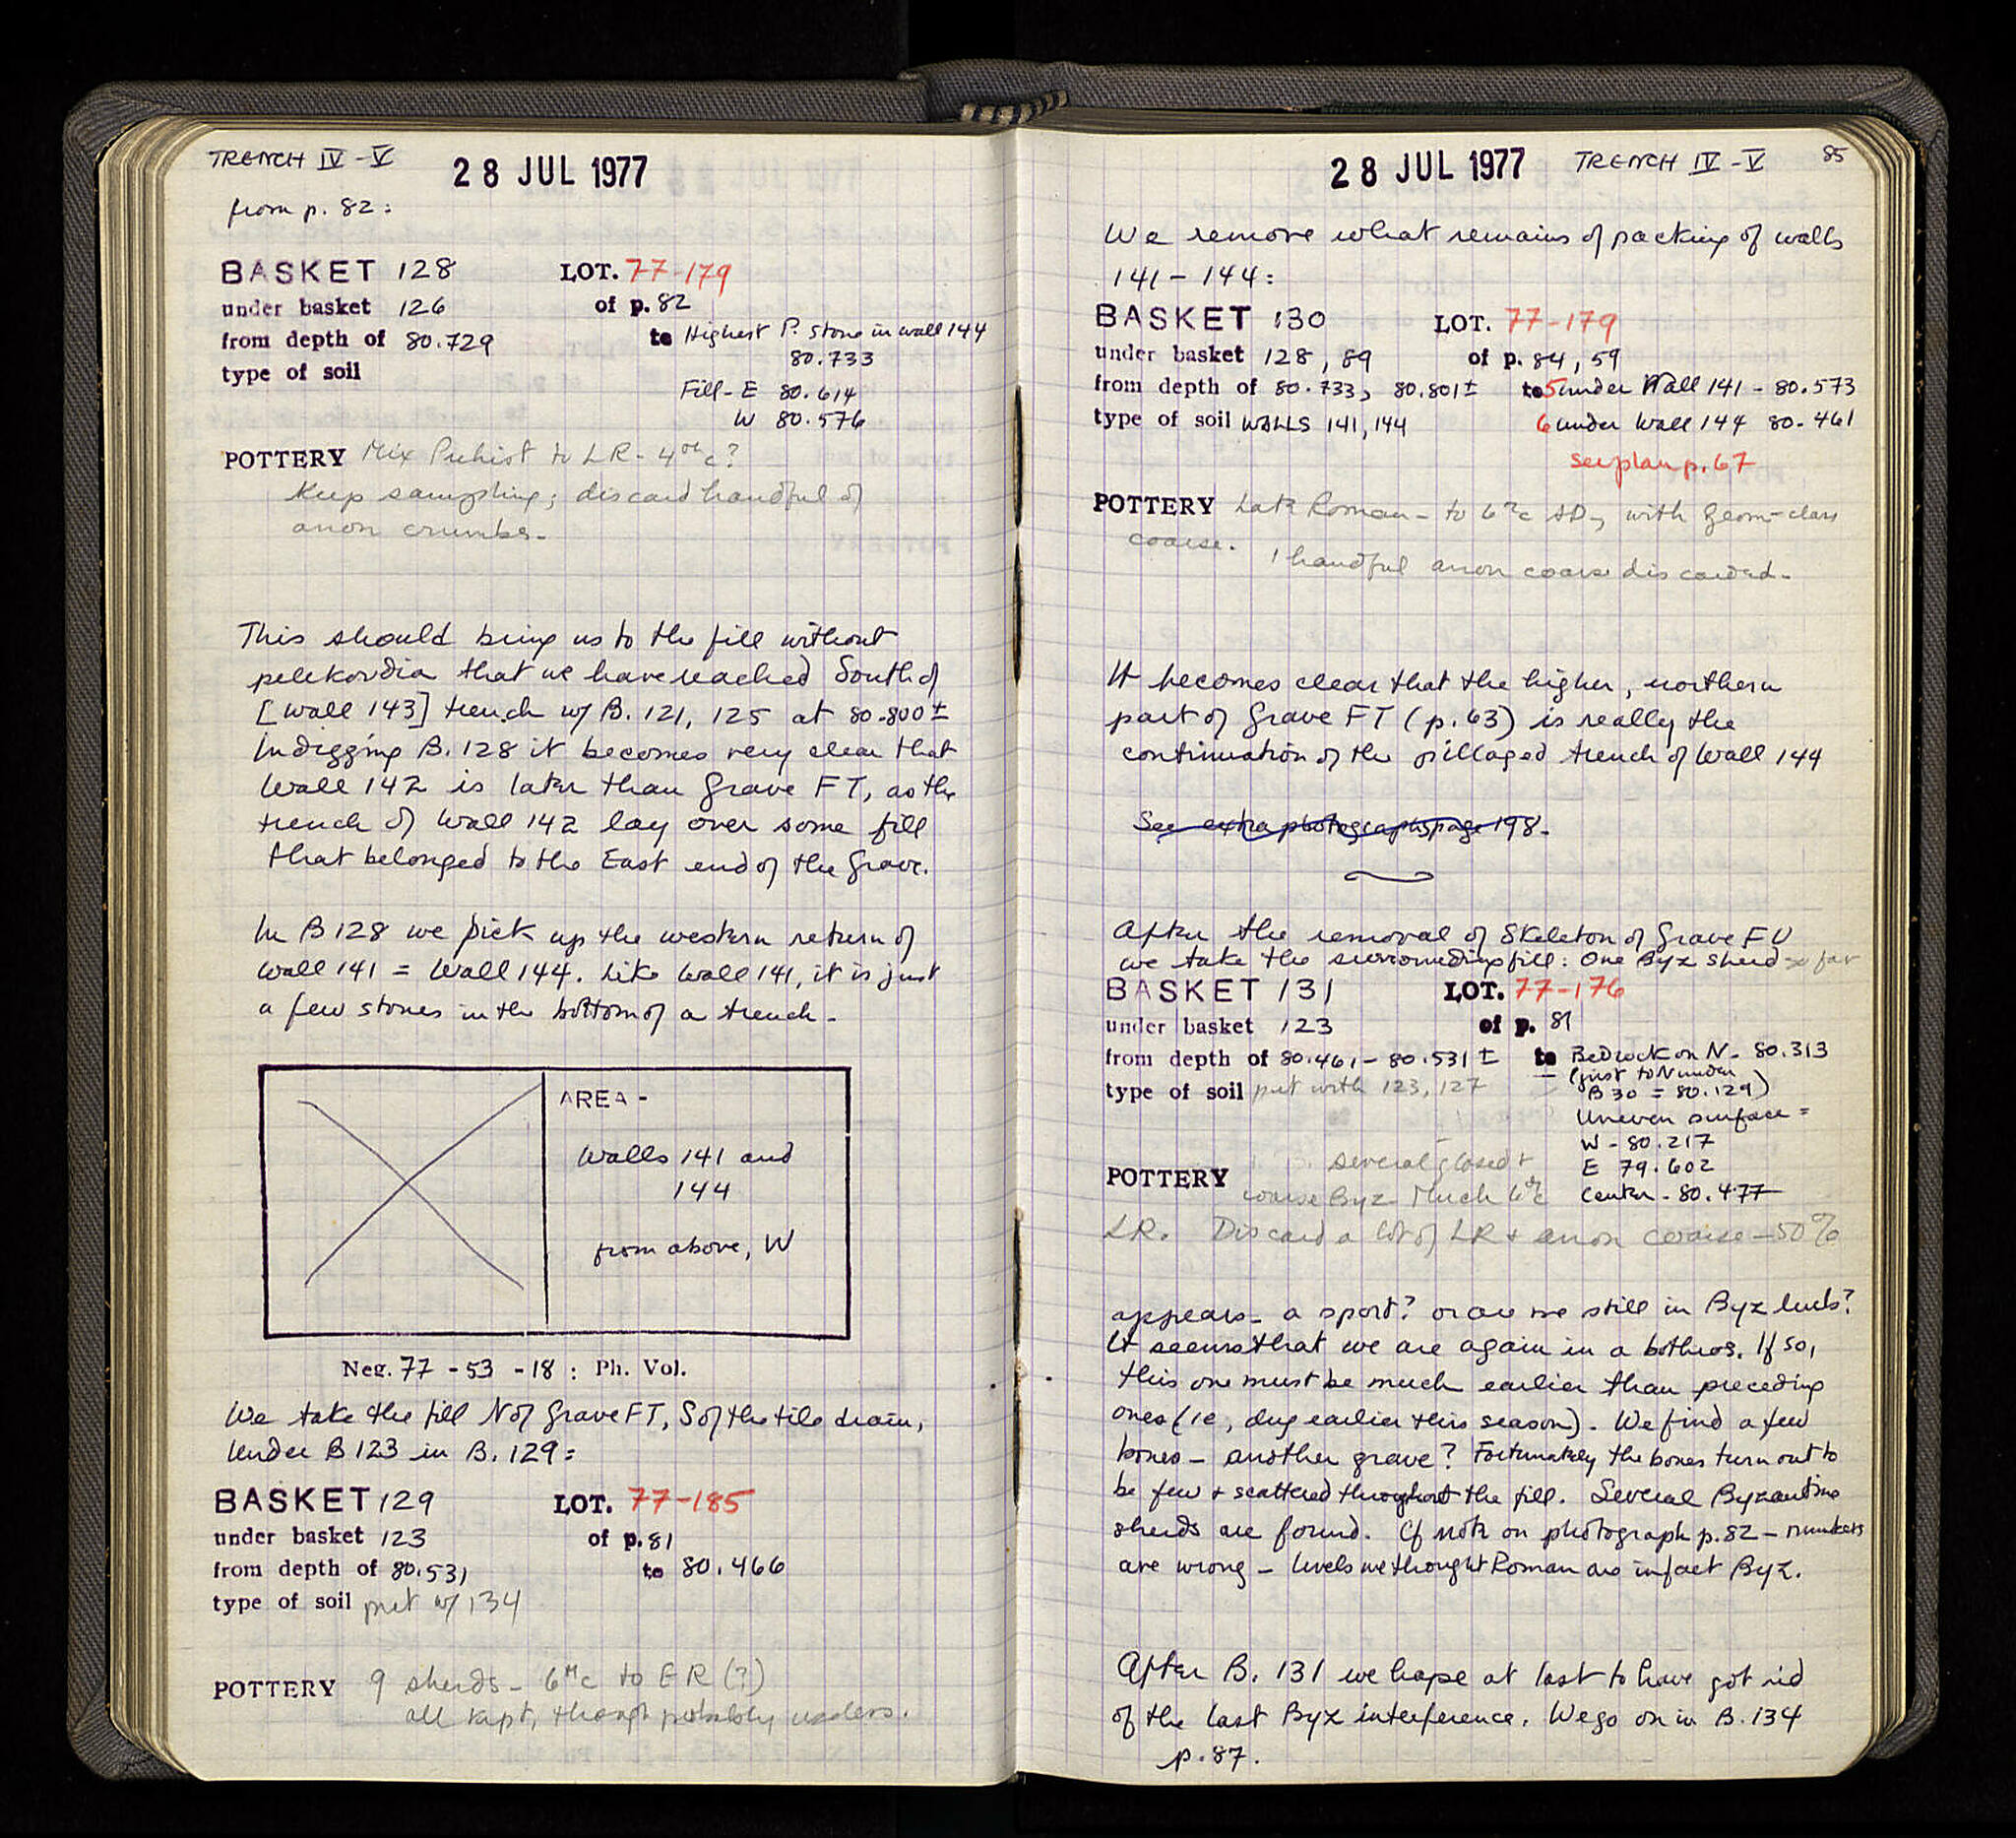 TRENCH IV - V
28 JUL 1977
from p. 82:
BASKET 128 LOT. 77-179
under basket 126 of p. 82
from depth of 80.729 to Highest P. stone in wall 144
80.733
type of soil
Fill - E 80.614
W 80.576
POTTERY Mix Prehist to LR - 4th c?
Keep sampling; discard handful of
anon crumbs-
This should bring us to the fill without
pelekoudia that we have reached South of
[Wall 143] trench w/ B. 121, 125 at 80.800±
In digging B. 128 it becomes very clear that
Wall 142 is later than Grave FT, as the
trench of Wall 142 lay over some fill
that belonged to the East end of the Grave.
In B 128 we pick up the western return of
Wall 141 = Wall 144. Like Wall 141, it is just
a few stones in the bottom of a trench.
AREA -
Walls 141 and
144
from above, W
Neg. 77 - 53 - 18 : Ph. Vol.
We take the fill N of Grave FT, S of the tile drain,
under B 123 in B. 129:
BASKET 129 LOT. 77-185
under basket 123 of p. 81
from depth of 80.531 to 80.466
type of soil put w/ 134
POTTERY 9 sherds - 6th c to ER (?)
all kept, though probably useless.
28 JUL 1977 TRENCH IV - V 85
We remove what remains of packing of walls
141 - 144:
BASKET 130 LOT. 77-179
under basket 128, 89 of p. 84, 59
from depth of 80.733, 80.801± to 5 under Wall 141 - 80.573
type of soil WALLS 141, 144 6 under Wall 144 80.461
see plan p. 67
POTTERY Late Roman - to 6th c AD, with Geom-class
coarse. 1 handful anon coarse discarded.
It becomes clear that the higher, northern
part of Grave FT (p. 63) is really the
continuation of the pillaged trench of Wall 144
See extra photographs page 198.
After the removal of Skeleton of Grave FU
we take the surrounding fill: One Byz sherd so far
BASKET 131 LOT. 77-176
under basket 123 of p. 81
from depth of 80.461 - 80.531± to Bedrock on N - 80.313
(just to N under
type of soil put with 123, 127 B 30 = 80.129)
Uneven surface =
W - 80.217
E 79.602
Center - 80.477
POTTERY several glosed +
coarse Byz. Much 6th c
LR. Discard a lot of LR + anon coarse - 50%
appears - a sport? or are we still in Byz levels?
It seems that we are again in a bothros. If so,
this one must be much earlier than preceding
ones (ie, dug earlier this season). We find a few
bones - another grave? Fortunately the bones turn out to
be few + scattered throughout the fill. Several Byzantine
sherds are found. Cf note on photograph p. 82 - numbers
are wrong - levels we thought Roman are in fact Byz.
After B. 131 we hope at last to have got rid
of the last Byz interference. We go on in B. 134
p. 87.